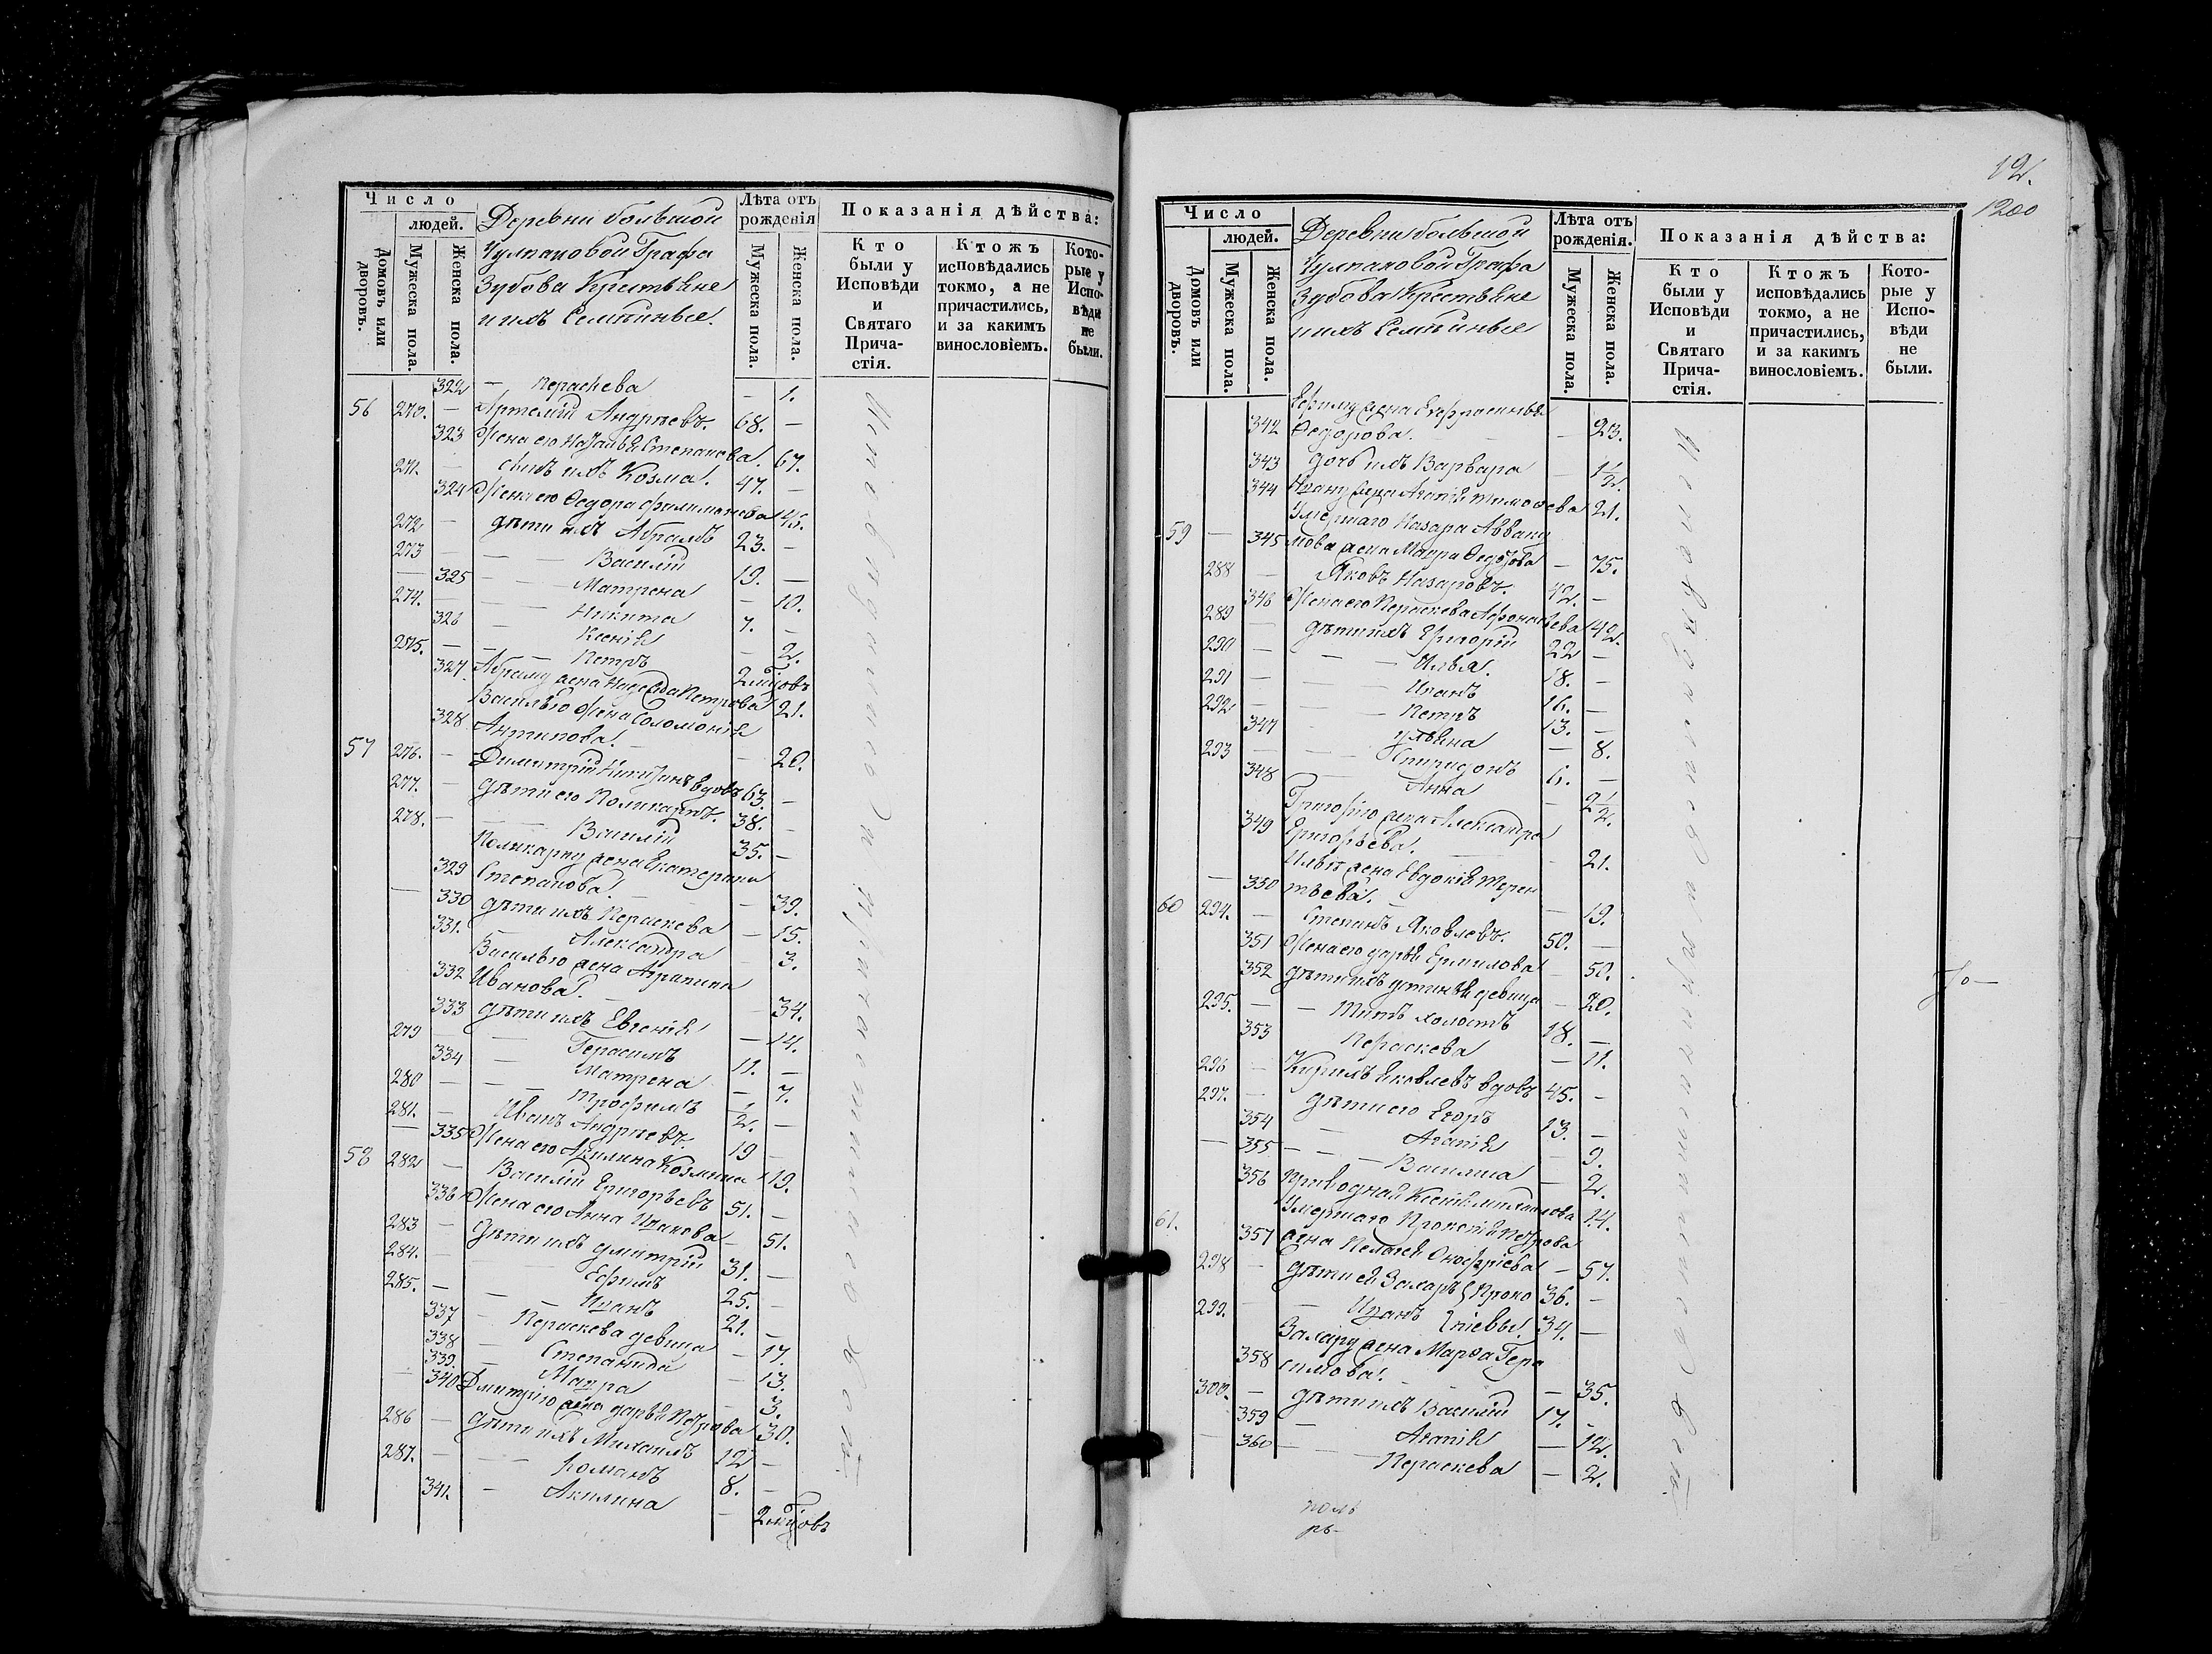 Число
людей.
Домовъ или дворовъ.
Мужеска пола.
Женска пола.
Деревни большой
Чулпановой Графа
Зубова Крестьяне
и ихъ Семѣиныя.
Лѣта отъ рожденія
Мужеска пола.
Женска пола.
Показанія дѣйства:
Кто были у Исповѣди и Святаго Причастія.
Ктожъ исповѣдались токмо, а не причастились, и за какимъ винословіемъ.
Которые у Исповѣди не были.
322 — Пераскева — 1.
56 270. — Артемій Андрѣевъ. 68. —
323 Жена его Наталья Степанова. 67.
271. — сынъ ихъ Козма. 47. —
324 Жена его Ѳедора Филимонова 45.
272 — дѣти ихъ Абрамъ 23. —
273 — — Василій 19. —
— 325 — Матрена — 10.
274. — — Никита 7. —
326 — Ксенія — 2.
275. — — Петръ 2 мцовъ
327. Абраму жена Надежда Петрова 21.
Василью жена Соломонія
328 Антипова. — 20.
57 276. — Димитрій Никитинъ вдовъ 63. —
277. — дѣти его Поликарпъ. 38. —
278. — — Василій 35. —
Поликарпу жена Екатерина
329 Степанова — 39.
— 330 дѣти ихъ Пераскева — 15.
331. — Александра — 3.
Василью жена Агрипина
332 Иванова. — 34.
333 дѣти ихъ Евгенія — 14.
279 — Герасимъ 11. —
334 — Матрена — 7.
280 — — Трофимъ 1/2. —
281. — Иванъ Андрѣевъ. 19 —
— 335 Жена его Акилина Козмина 19.
58 282 — Василій Григорьевъ 51. —
336 Жена его Анна Исакова — 51.
283 — Дѣти ихъ Дмитрій 31. —
284. — — Ефимъ 25. —
285. — — Иванъ 21. —
337 — Пераскева девица — 17.
338 — Степанида — 13.
339. — Мавра — 3.
— 340 Дмитрію жена Дарья Петрова 30.
286 — дѣти ихъ Михаилъ 12 —
287. — — Романъ 8. —
341. — Акилина — 2 мцовъ
Исповѣдались и причастились Всѣ
12.
1200
Число
людей.
Домовъ или дворовъ.
Мужеска пола.
Женска пола.
Деревни большой
Чулпановой Графа
Зубова Крестьяне
и ихъ Семѣиныя
Лѣта отъ рожденія.
Мужеска пола.
Женска пола.
Показанія дѣйства:
Кто были у Исповѣди и Святаго Причастія.
Ктожъ исповѣдались токмо, а не причастились, и за какимъ винословіемъ.
Которые у Исповѣди не были.
Ефиму жена Евфросинья
342 Ѳедорова. — 23.
343 дочь ихъ Варвара — 1 1/2.
344 Ивану жена Агапія Тимоѳева 21.
59 — Умершаго Назара Аввакумова
345 жена Мавра Ѳедорова — 75.
288 — Яковъ Назаровъ. 42. —
346 Жена его Пераскева Афонасьева 42.
289 — дѣти ихъ Григорій 22 —
290 — — Илья. 18. —
291 — — Иванъ 16. —
292 — — Петръ 13. —
347 — Ульяна — 8.
293 — — Спиридонъ 6. —
348 — Анна — 2 1/2.
Григорію жена Александра
349 Григорьева. — 21.
Ильѣ жена Евдокія Терен
350 тьева. — 19.
60 294. — Степанъ Яковлевъ. 50. —
351 Жена его Дарья Ермилова — 50.
352 дѣти ихъ Устинья девица — 20.
295. — — Титъ холостъ 18. —
353 Пераскева — 11.
296 — Кирилъ Яковлевъ вдовъ 45. —
297. — дѣти его Егоръ 13. —
354 — Агапія — 9.
355 — — Василиса — 2.
356 Приводная Ксенія Михайлова 14.
61. Умершаго Прокопія Петрова
357 жена Пелагея Онофріева — 57.
298 — Дѣти ея Захаръ { Проко 36. —
299. — Иванъ { піевы. 34. —
Захару жена Марѳа Гера
358 симова. — 35.
300. — дѣти ихъ Василій 17. —
359 — Агапія — 12.
360 — Пераскева — 2.
Исповѣдались и причастились Всѣ